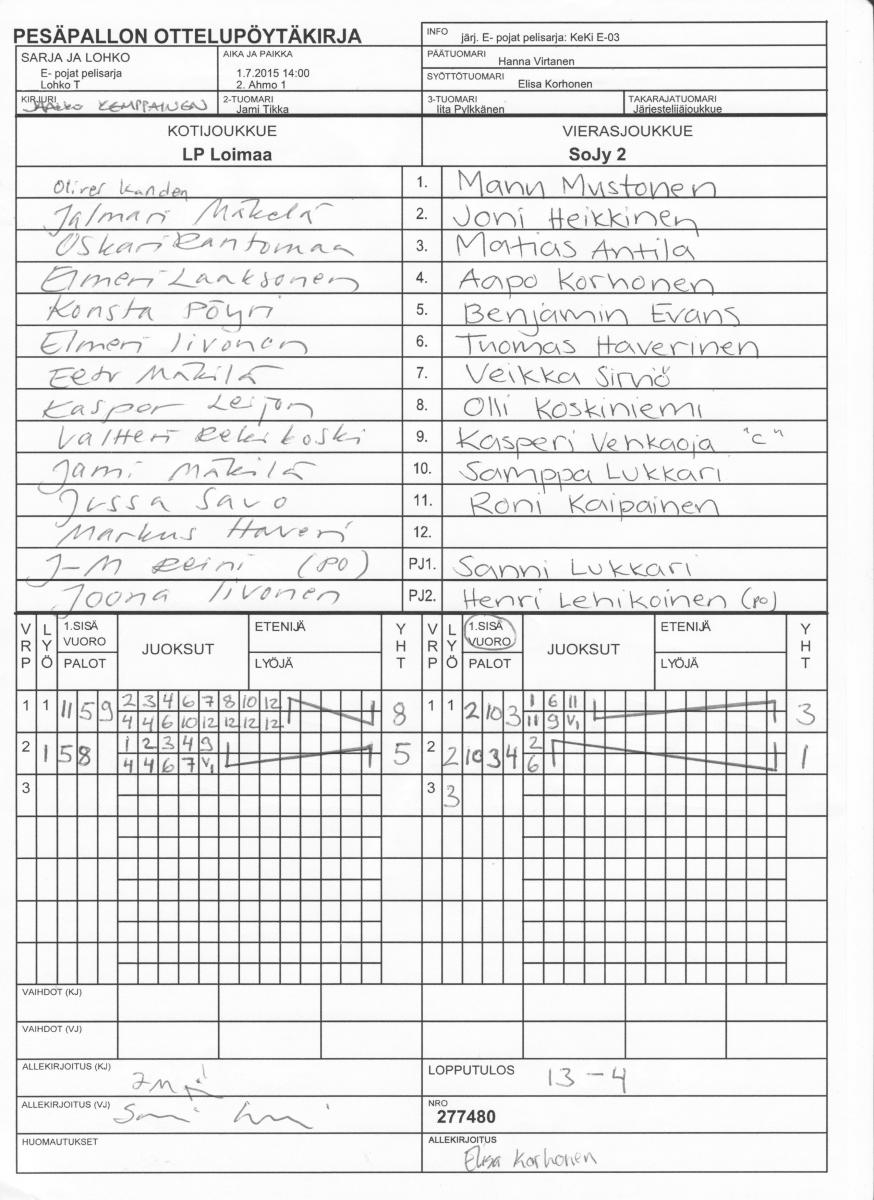 PESÄPALLON OTTELUPÖYTÄKIRJA
INFO järj. E- pojat pelisarja: KeKi E-03
SARJA JA LOHKO
E- pojat pelisarja
Lohko T
AIKA JA PAIKKA
1.7.2015 14:00
2. Ahmo 1
PÄÄTUOMARI Hanna Virtanen
SYÖTTÖTUOMARI Elisa Korhonen
KIRJURI
Jaakko Kemppainen
2-TUOMARI
Jami Tikka
3-TUOMARI
Iita Pylkkänen
TAKARAJATUOMARI
Järjestelijäjoukkue
KOTIJOUKKUE
LP Loimaa
VIERASJOUKKUE
SoJy 2
Oliver Kanden 1. Manu Mustonen
Jalmari Mäkelä 2. Joni Heikkinen
Oskari Rantomaa 3. Matias Antila
Elmeri Laaksonen 4. Aapo Korhonen
Konsta Pöyri 5. Benjamin Evans
Elmeri Iivonen 6. Tuomas Haverinen
Eetu Mäkilä 7. Veikka Sirviö
Kasper Leijon 8. Olli Koskiniemi
Valtteri Rekikoski 9. Kasperi Vehkaoja "C"
Jami Mäkilä 10. Samppa Lukkari
Jussa Savo 11. Roni Kaipainen
Markus Haveri 12.
J-M Reini (PO) PJ1. Sanni Lukkari
Joona Iivonen PJ2. Henri Lehikoinen (po)
VRP LYÖ 1.SISÄ VUORO PALOT JUOKSUT ETENIJÄ LYÖJÄ YHT VRP LYÖ 1.SISÄ VUORO PALOT JUOKSUT ETENIJÄ LYÖJÄ YHT
1 1 11 5 9 2 3 4 6 7 8 10 12 8 1 1 2 10 3 1 6 11 3
4 4 6 10 12 12 12 12 11 9 V1
2 1 5 8 1 2 3 4 9 5 2 2 10 3 4 2 1
4 4 6 7 V1 6
3 3 3
VAIHDOT (KJ)
VAIHDOT (VJ)
ALLEKIRJOITUS (KJ)
LOPPUTULOS 13 - 4
ALLEKIRJOITUS (VJ)
NRO
277480
HUOMAUTUKSET
ALLEKIRJOITUS
Elisa Korhonen